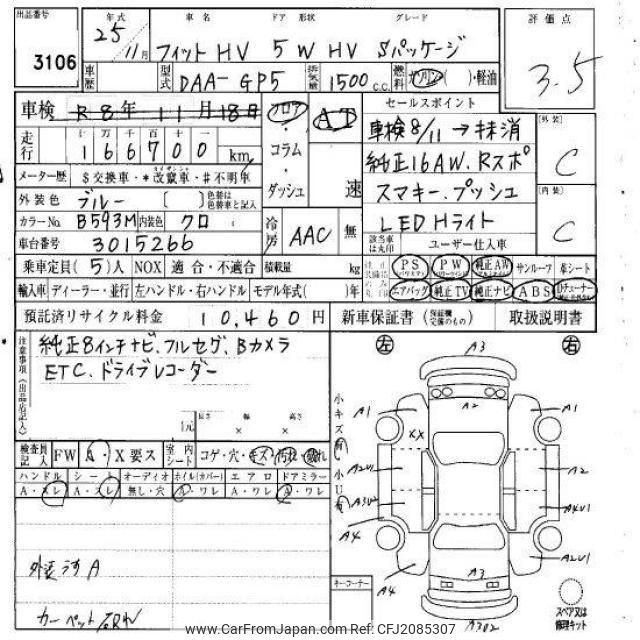 出品番号 年式 車名 ドア 形状 グレード 評価点
3106 25年11月 フィットHV 5W HV Sパッケージ 3.5
車歴 型式 DAA-GP5 排気量 1500 c.c. 燃料 ガソリン( )・軽油
車検 R8年11月18日 フロア・コラム・ダッシュ AT 速 セールスポイント
走行 十万千百十一 166700 km
車検8/11→抹消
純正16AW、Rスポ
スマキー、プッシュ
LED Hライト
外装 C
内装 C
メーター歴 $交換車・*改竄車・#不明車
外装色 ブルー [ ] 色替は色替車と記入
カラーNo. B593M 内装色 クロ 冷房 AAC 無
車台番号 3015266 該当車は丸印 ユーザー仕入車
乗車定員(5)人 NOX 適合・不適合 積載量 kg PS PW 純正AW サンルーフ 革シート
輸入車 ディーラー・並行 左ハンドル・右ハンドル モデル年式( )年 エアバッグ 純正TV 純正ナビ ABS
預託済リサイクル料金 10,460円 新車保証書 取扱説明書
注意事項(出品店記入)
純正8インチナビ、フルセグ、Bカメラ
ETC、ドライブレコーダー
長さ 幅 高さ
元 × ×
検査員記入 FW A・X要ス 室内シート コゲ・穴・キズ・汚れ・破れ
ハンドル シート オーディオ ホイル(カバー) エアロ ドアミラー
A・スレ A・スレ 無し・穴 A・ワレ A・ワレ A・ワレ
外装うすA
カーペット破れ
左 右
小キズ有 小U有
A3
A1 A2 A1
XX
A2U1 A2
A3U2 A4U1
A4 A2U1
A4 A3
A3U2
キーコーナー
スペア又は修理キット
www.CarFromJapan.com - Ref:CFJ2085307